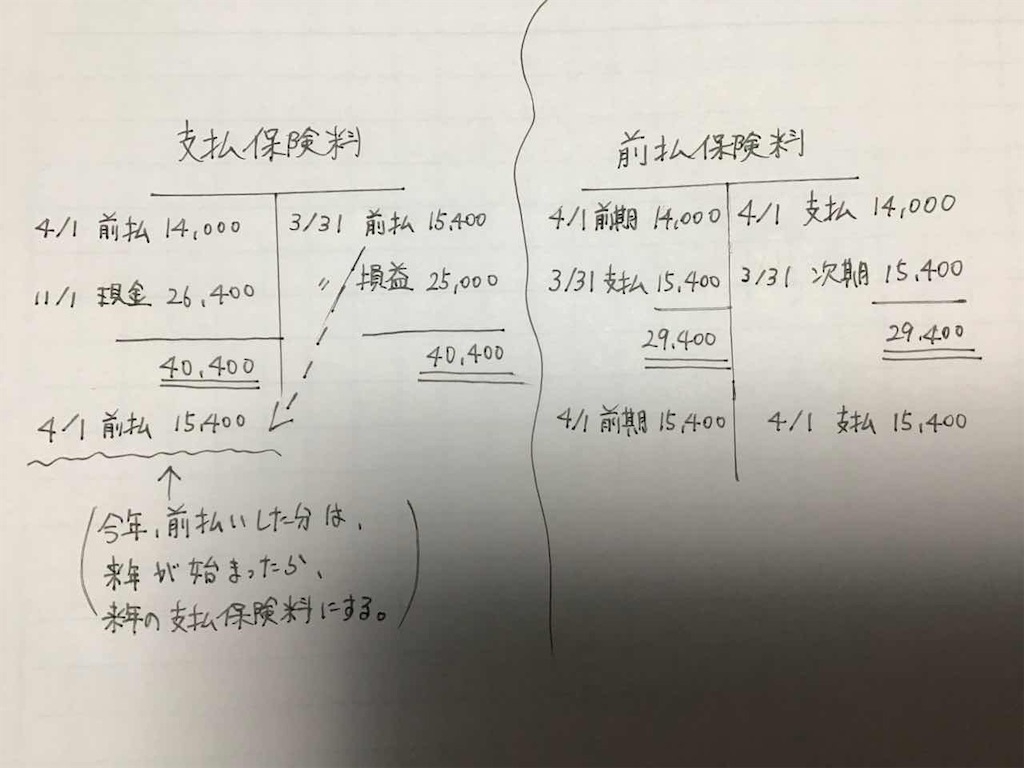 支払保険料
4/1 前払 14,000 3/31 前払 15,400
11/1 現金 26,400 〃 損益 25,000
40,400 40,400
4/1 前払 15,400
(今年、前払いした分は、
来年が始まったら、
来年の支払保険料にする。)
前払保険料
4/1 前期 14,000 4/1 支払 14,000
3/31 支払 15,400 3/31 次期 15,400
29,400 29,400
4/1 前期 15,400 4/1 支払 15,400